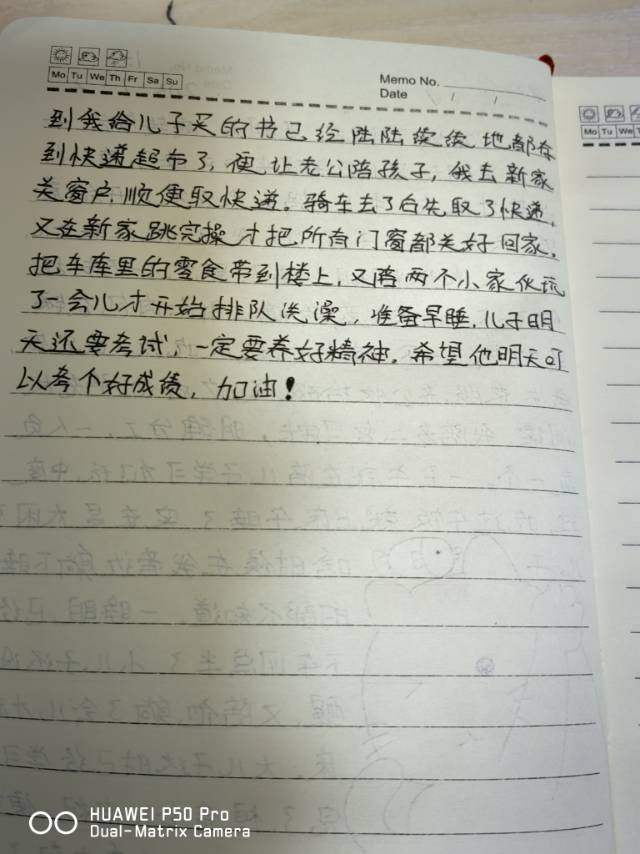 Mo Tu We Th Fr Sa Su
Memo No.
Date / /
Mo Tu We T
到我给儿子买的书已经陆陆续续地都存
到快递超市了，便让老公陪孩子，我去新家
关窗户，顺便取快递。骑车去了白先取了快递，
又在新家跳完操才把所有门窗都关好回家。
把车库里的零食带到楼上，又陪两个小家伙玩
了一会儿才开始排队洗澡，准备早睡，儿子明
天还要考试，一定要养好精神。希望他明天可
以考个好成绩，加油！
HUAWEI P50 Pro
Dual-Matrix Camera